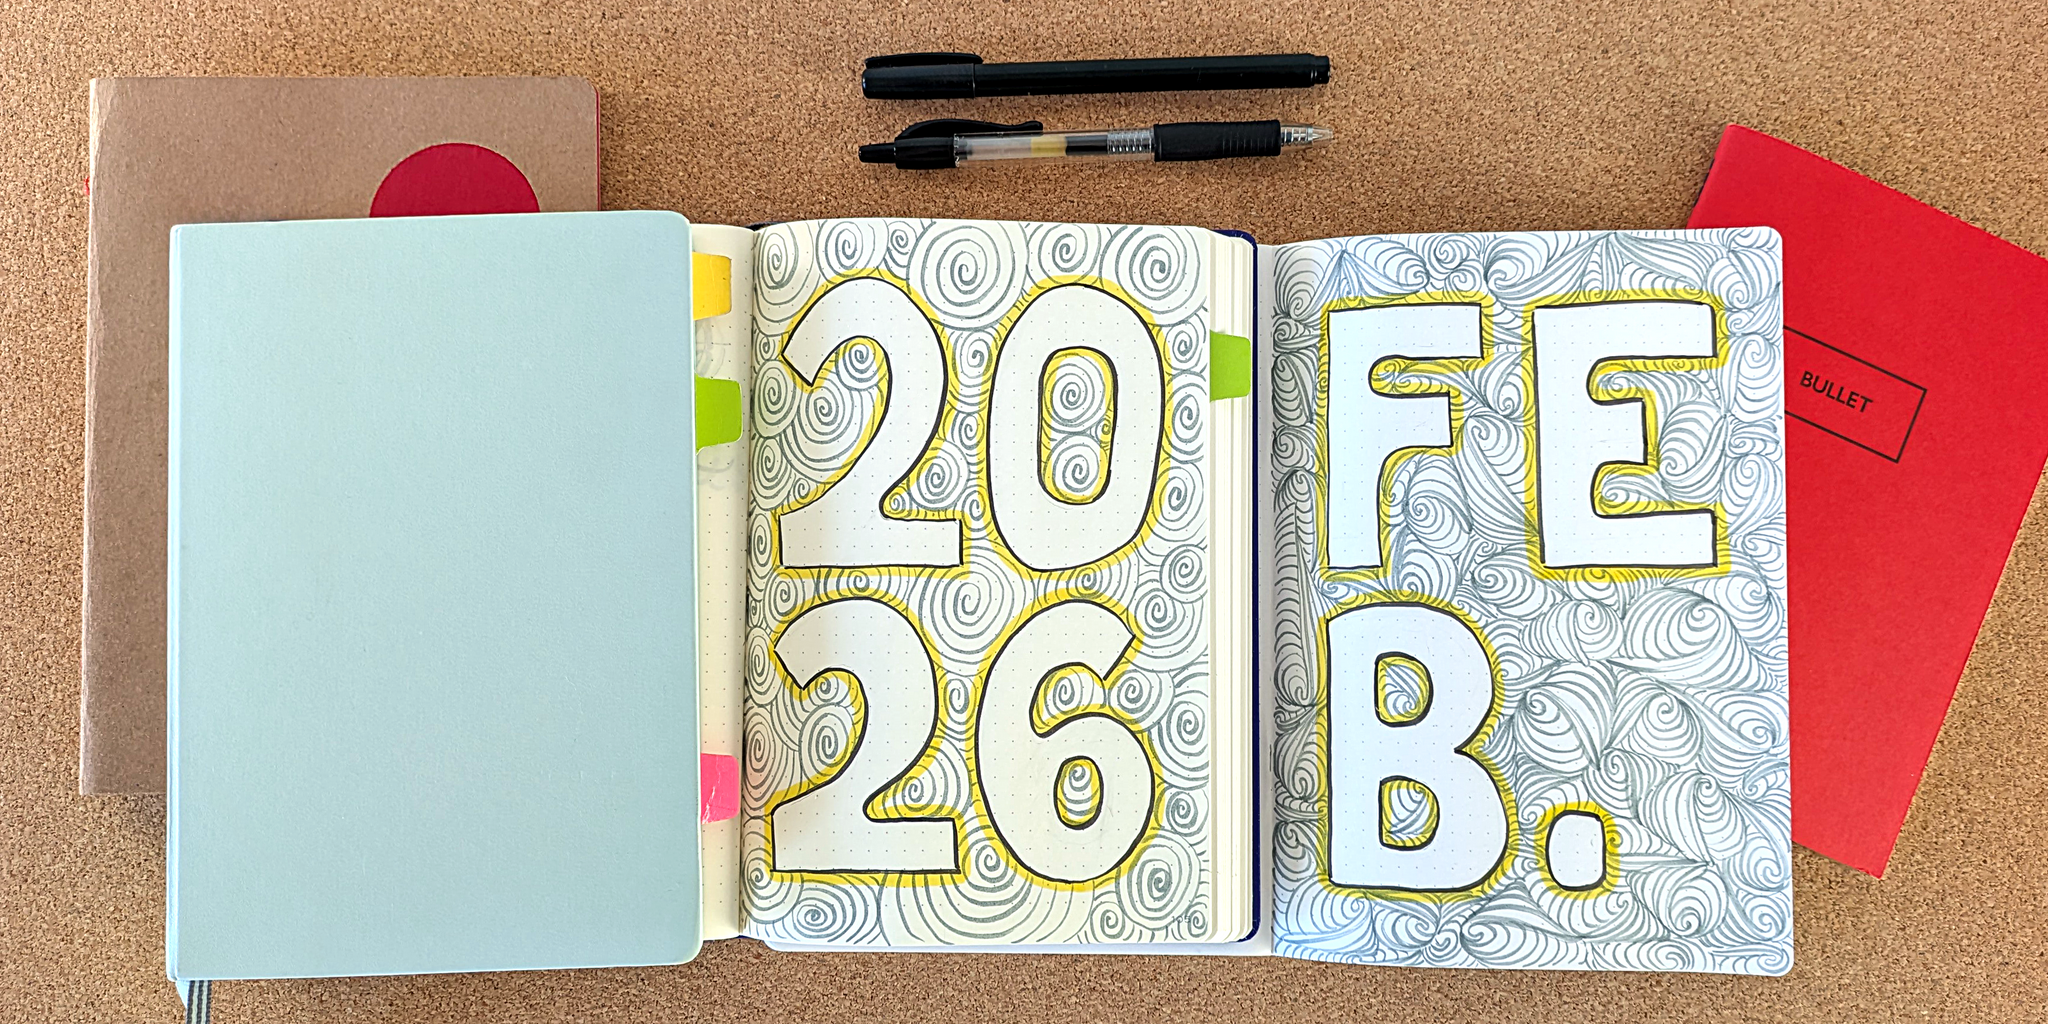 20
26
FE
B.
BULLET